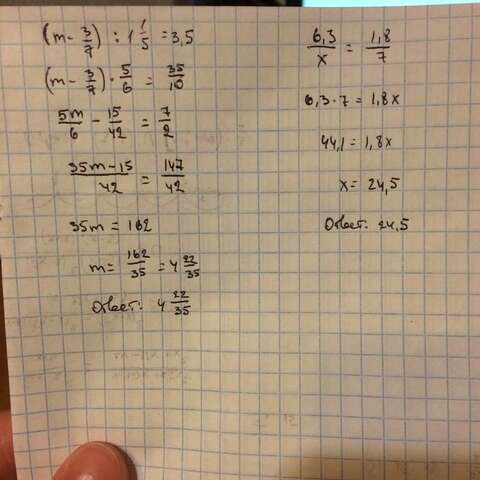 (m - 3/7) : 1 1/5 = 3,5
(m - 3/7) · 5/6 = 35/10
5m/6 - 15/42 = 7/2
35m - 15/42 = 147/42
35m = 162
m = 162/35 = 4 22/35
Ответ: 4 22/35
6,3/x = 1,8/7
6,3 · 7 = 1,8x
44,1 = 1,8x
x = 24,5
Ответ: 24,5